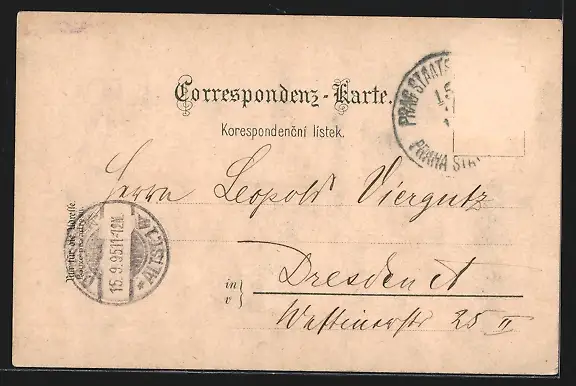 Correspondenz-Karte.
Korespondenční lístek.
PRAG STAATS
PRAHA STA
Herrn Leopold Viergutz
Nur für die Adresse.
15.9.95 11-12V.
ALTST.
in
v
Dresden A
Wettinerstr 25 II